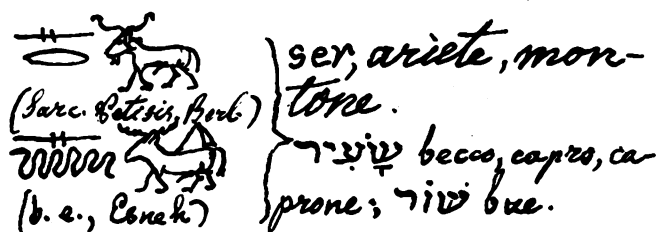 (Sarc. Petisis, Berl)
(b. e., Esneh)
ser, ariete, mon-
tone.
שָׂעִיר becco, capro, ca-
prone; שׁוֹר bue.